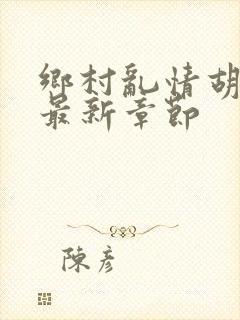 鄉村亂情胡
最新章節
陳彥